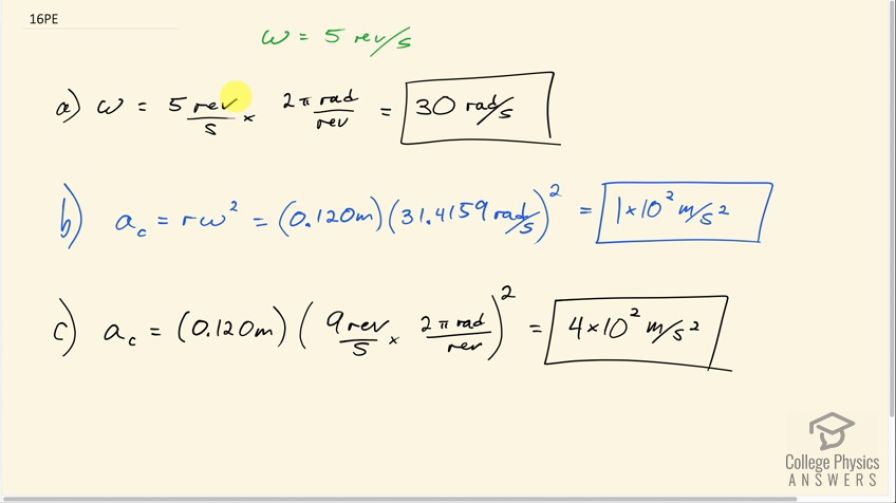 16PE
ω = 5 rev/s
a) ω = 5 rev/s × 2π rad/rev = 30 rad/s
b) a_c = rω² = (0.120m)(31.4159 rad/s)² = 1×10² m/s²
c) a_c = (0.120m)(9 rev/s × 2π rad/rev)² = 4×10² m/s²
College Physics
ANSWERS